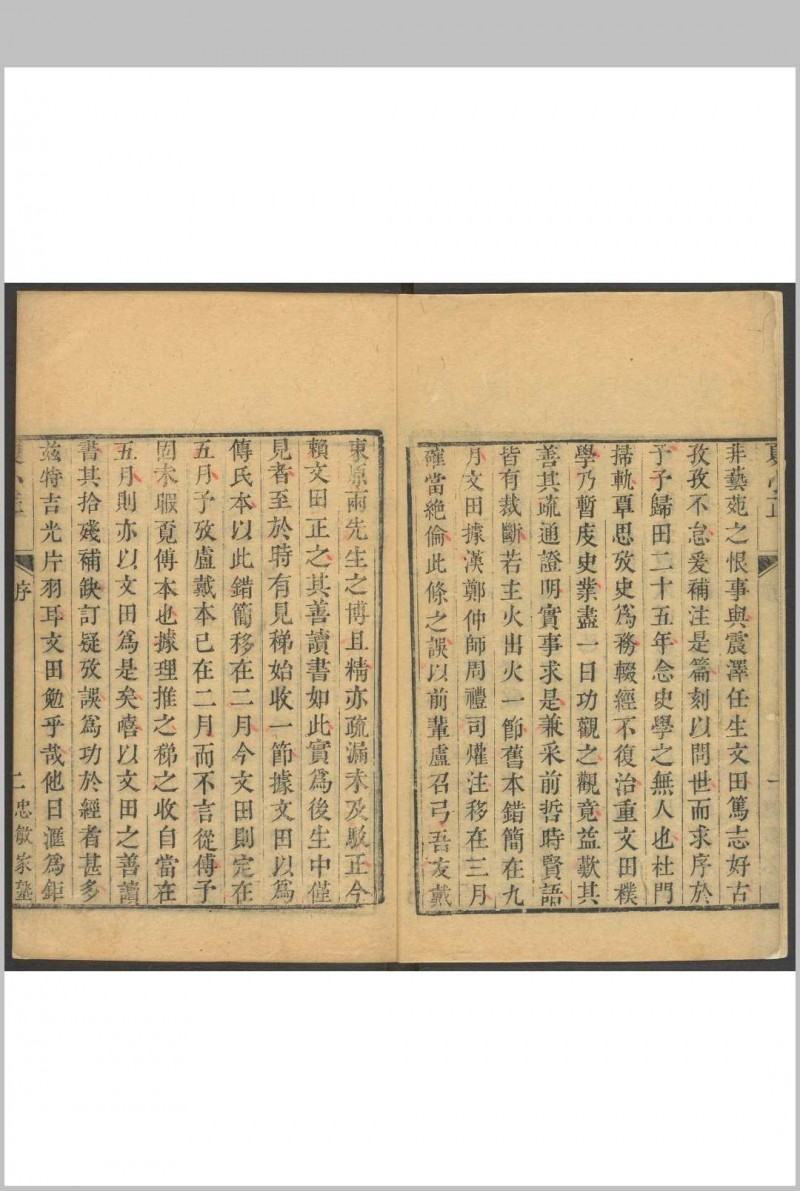 夏小正
一
非藝苑之恨事與震澤任生文田篤志好古
孜孜不怠爰補注是篇刻以問世而求序於
予予歸田二十五年念史學之無人也杜門
掃軌覃思攷史爲務輟經不復治重文田樸
學乃暫庋史業盡一日功觀之觀竟益歎其
善其疏通證明實事求是兼采前哲時賢語
皆有裁斷若主火出火一節舊本錯簡在九
月文田據漢鄭仲師周禮司爟注移在三月
確當絶倫此條之誤以前輩盧召弓吾友戴
東原兩先生之博且精亦疏漏未及駁正今
賴文田正之其善讀書如此實爲後生中僅
見者至於時有見稊始收一節據文田以爲
傅氏本以此錯簡移在二月今文田則定在
五月予攷盧戴本已在二月而不言從傅予
固未暇覓傅本也據理推之稊之收自當在
五月則亦以文田爲是矣嘻以文田之善讀
書其拾殘補缺訂疑攷誤爲功於經者甚多
茲特吉光片羽耳文田勉乎哉他日滙爲鉅
夏小正
序
二
忠敏家塾